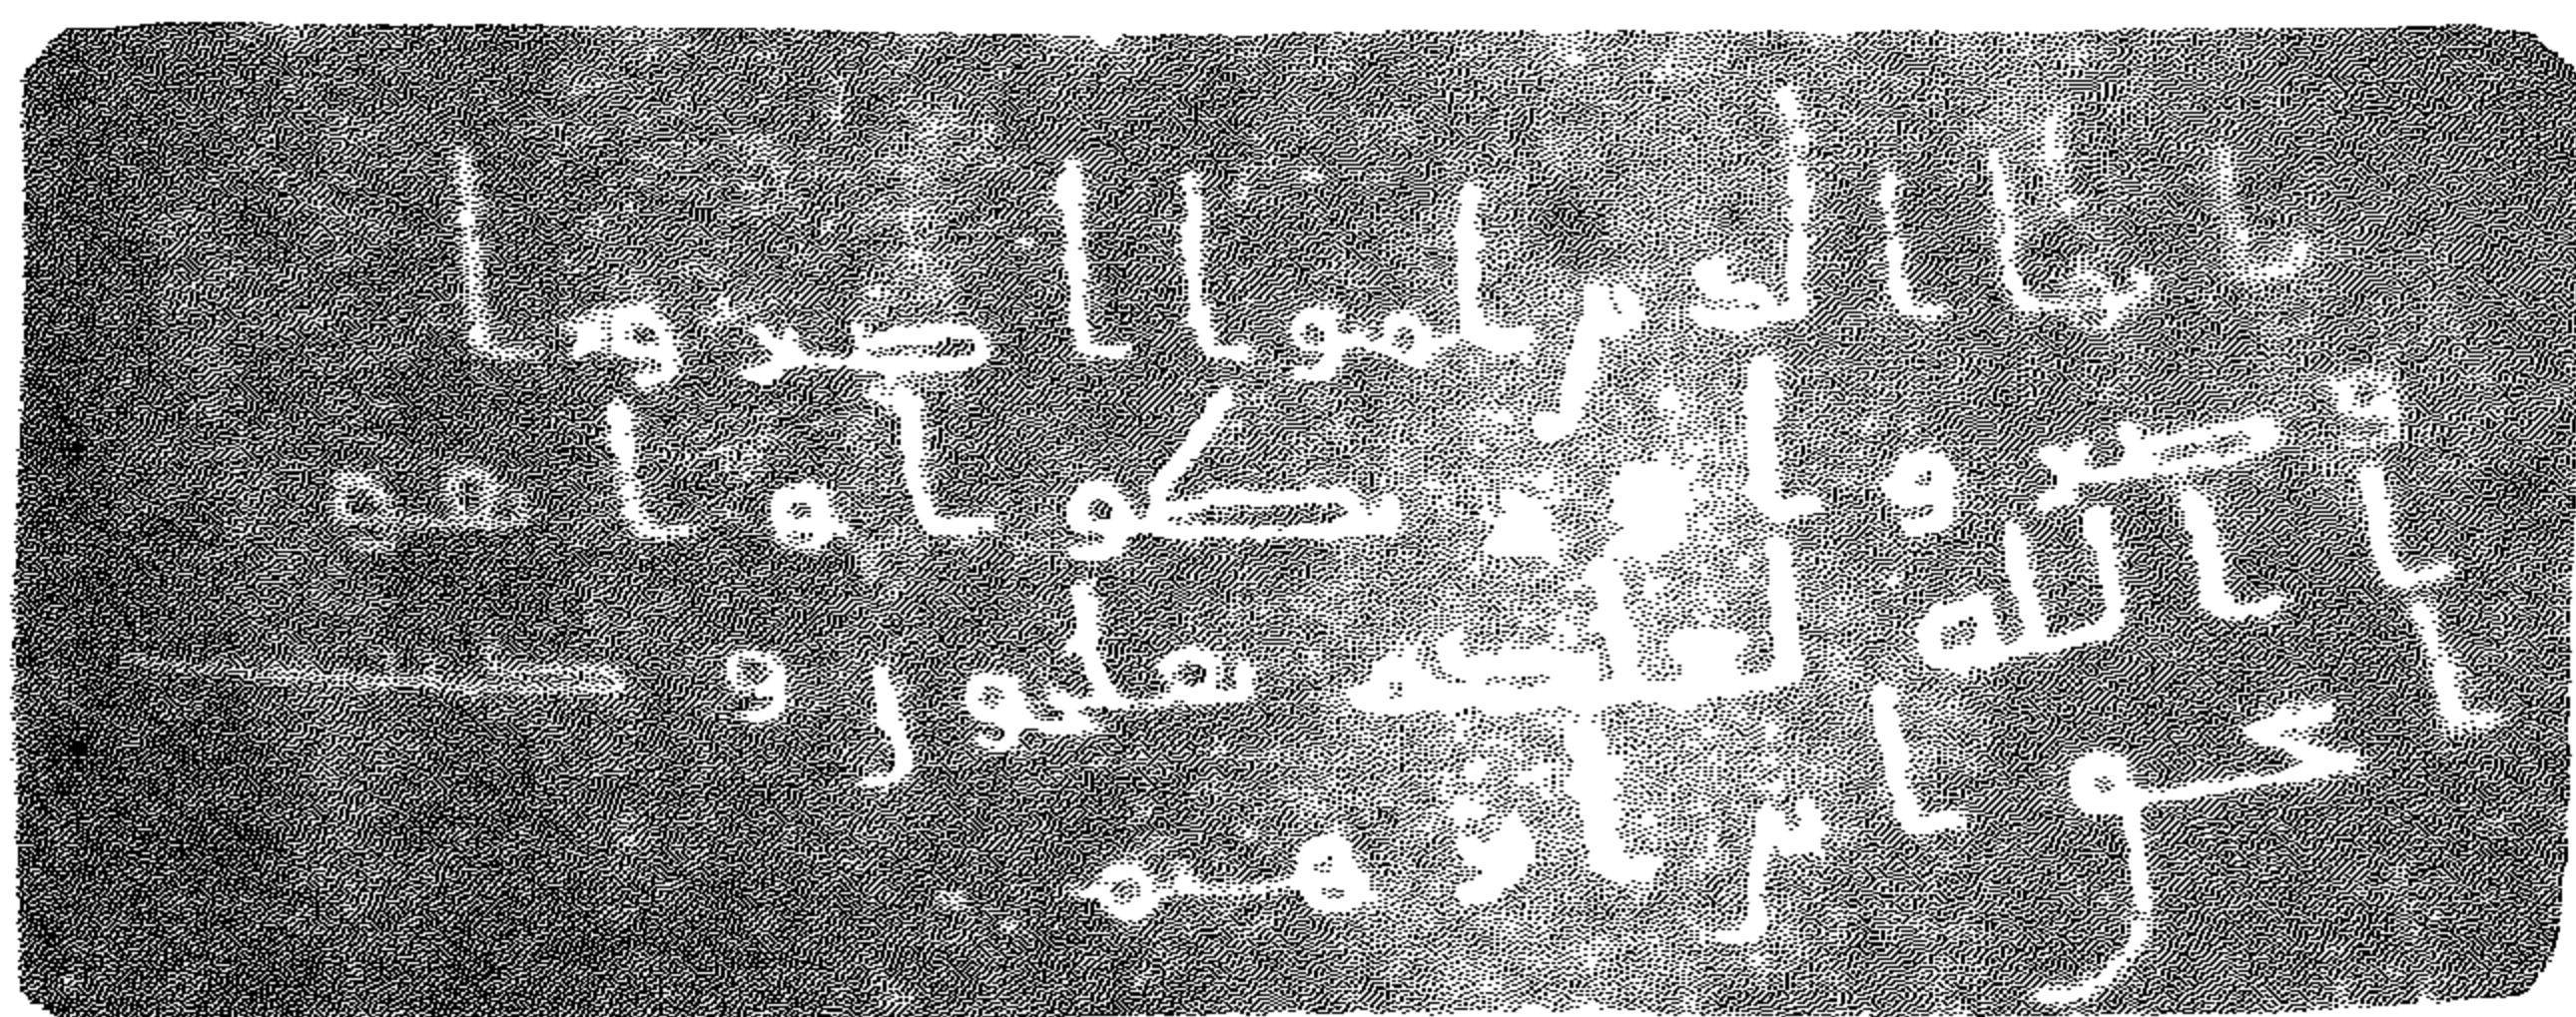 يايها الذين امنوا اصبروا
وصبروا ورابطوا واتقو
ا الله لعلكم تفلحون وكتب
بن